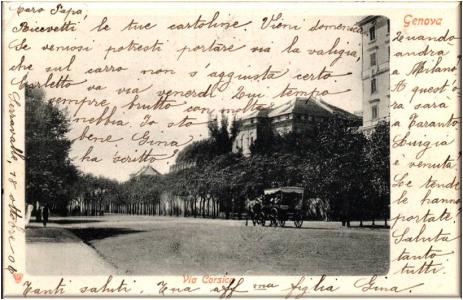 Caro Papà,
Ricevetti le tue cartoline. Vieni domenica
Se venissi potresti portare via la valigia,
che sul carro non s'aggiusta certo.
Carletto va via venerdì. Qui tempo
sempre brutto con molta
nebbia. Io sto
bene. Gina
ha scritto.
Genova
Quando
andra
a Milano?
A quest'o
ra sarà
a Taranto.
Luigia
è venuta
Le tende
le hanno
portate?
Saluta
tanto
tutti.
Serravalle, 18 ottobre 06
Via Corsica
Tanti saluti. Tua aff ma figlia Gina.